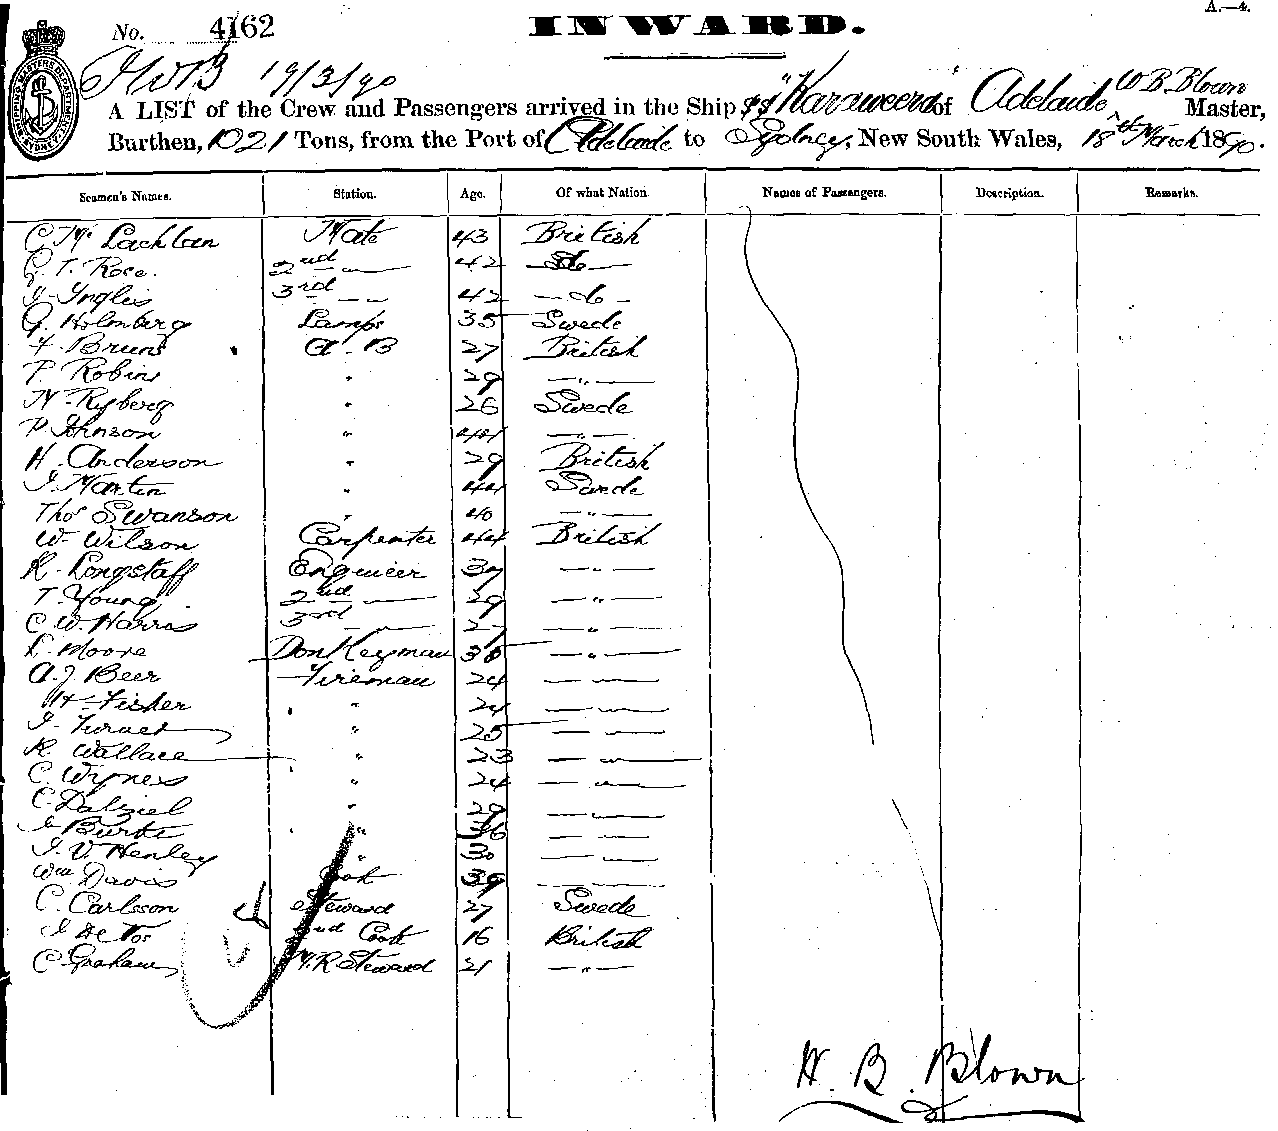 A.—4.
No. 4162 INWARD.
HWB 19/3/90
A LIST of the Crew and Passengers arrived in the Ship SS "Karaweera" of Adelaide, W B Blown Master,
Burthen, 1021 Tons, from the Port of Adelaide to Sydney, New South Wales, 18th March 1890.
Seamen's Names. Station. Age. Of what Nation. Names of Passengers. Description. Remarks.
C. McLachlan Mate 43 British
G T. Roce. 2nd — 42 — do —
Inglis 3rd — 42 — do —
G. Holmberg Lamps 35 Swede
F. Bruns A.B 27 British
P. Robins " 29 — " —
N. Ryberg " 26 Swede
P. Johnson " 44 — " —
H. Anderson " 29 British
J. Martin " 44 Swede
Thos Swanson " 40 — " —
W. Wilson Carpenter 44 British
R. Longstaff Engineer 37 — " —
T. Young 2nd — 29 — " —
C. W. Harris 3rd — — " —
L. Moore Donkeyman 38 — " —
A. J. Beer Fireman 24 — " —
H. Fisher " 24 — " —
J. Turner " 25 — " —
R. Wallace " 23 — " —
C. Wyness " 24 — " —
C. Dalziel " 29 — " —
J. Burke " 36 — " —
J. V. Henley " 30 — " —
Wm Davis Cook 39
C. Carlsson Steward 27 Swede
2nd Cook 16 British
C. Graham M.R Steward 21 — " —
W. B. Blown